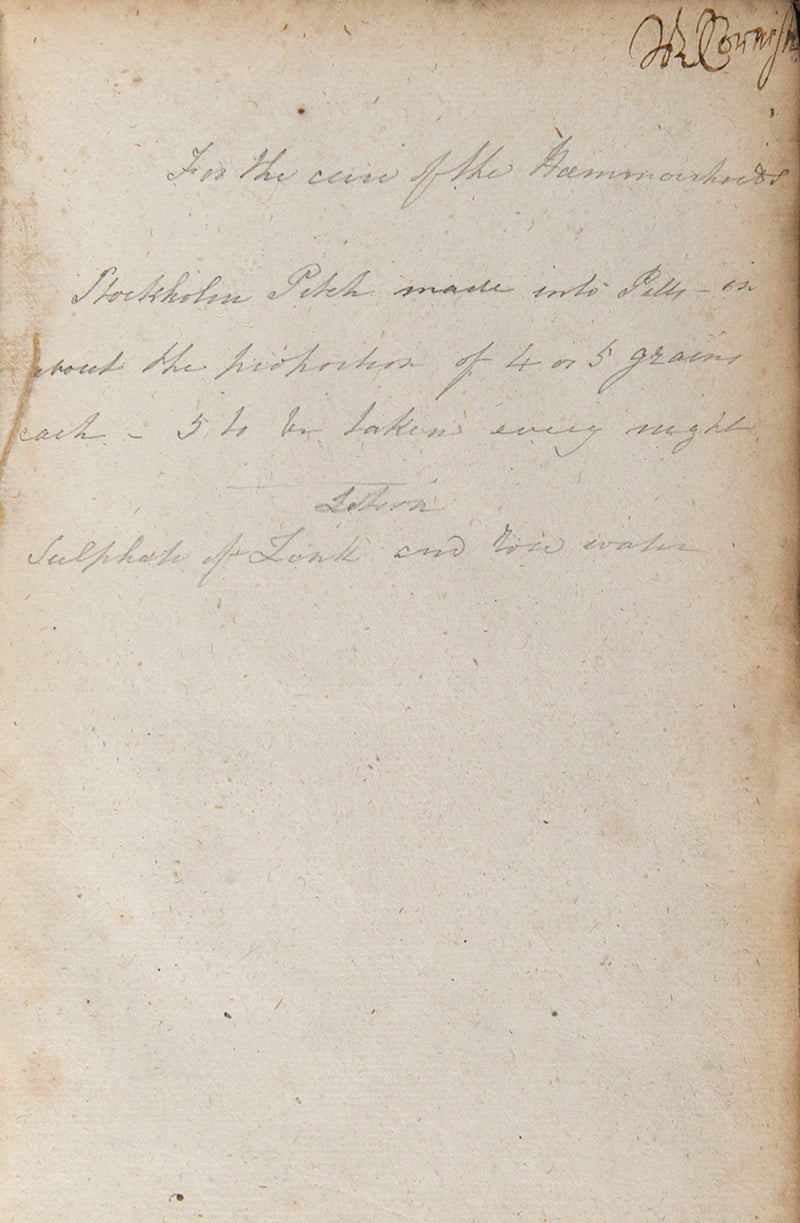 Cornish
For the cure of the Haemmorhoids
Stockholm Pitch made into Pills - in
about the proportion of 4 or 5 grains
each - 5 to be taken every night
Sulphate of Zink and rose water